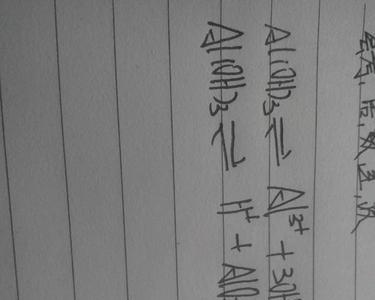 Al(OH)₃ ⇌ Al³⁺ + 3OH
Al(OH)₃ ⇌ H⁺ + AlO